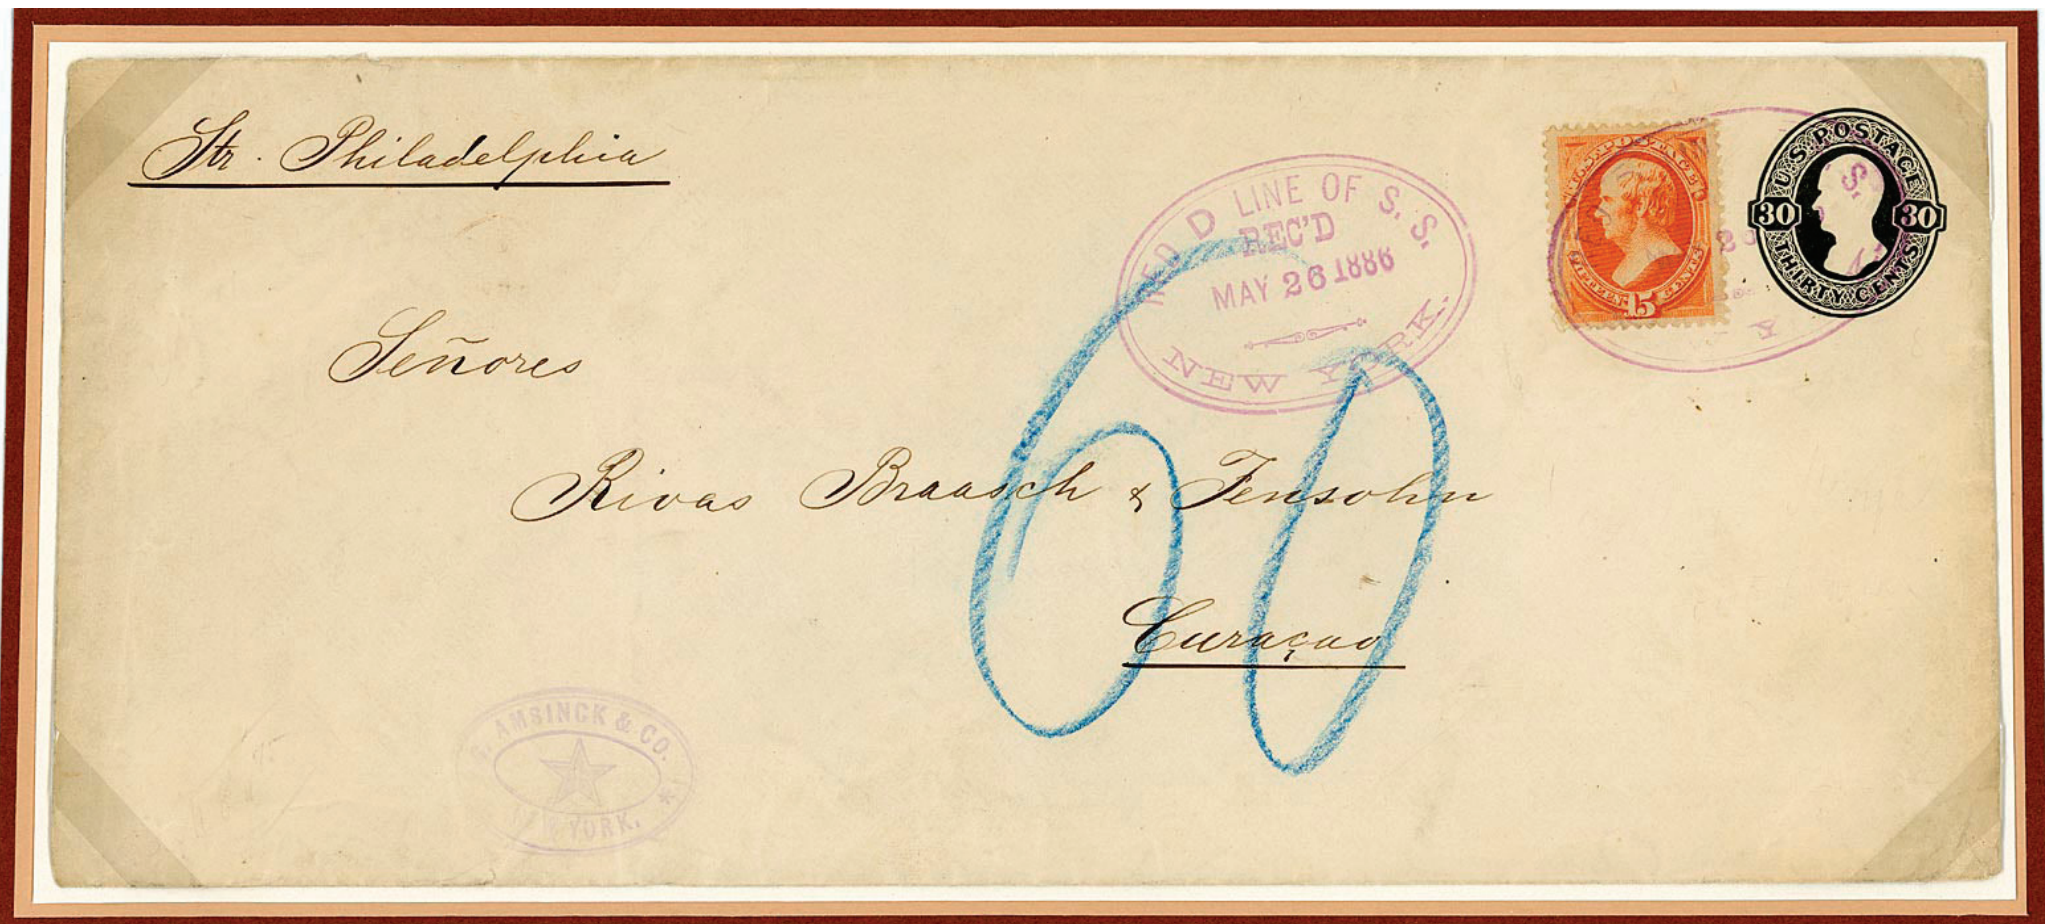 Str. Philadelphia
RED D LINE OF S. S.
REC'D
MAY 26 1886
NEW YORK.
U.S. POSTAGE
15
FIFTEEN CENTS
U.S. POSTAGE
30 30
THIRTY CENTS
S.
26
Y
Señores
Rivas Braasch & Fensohn
Curaçao
60
G. AMSINCK & CO.
NEW YORK.